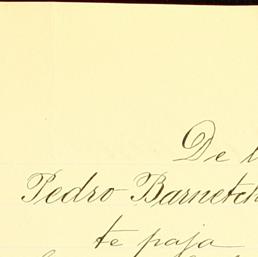 De l
Pedro Barnetch
te paja